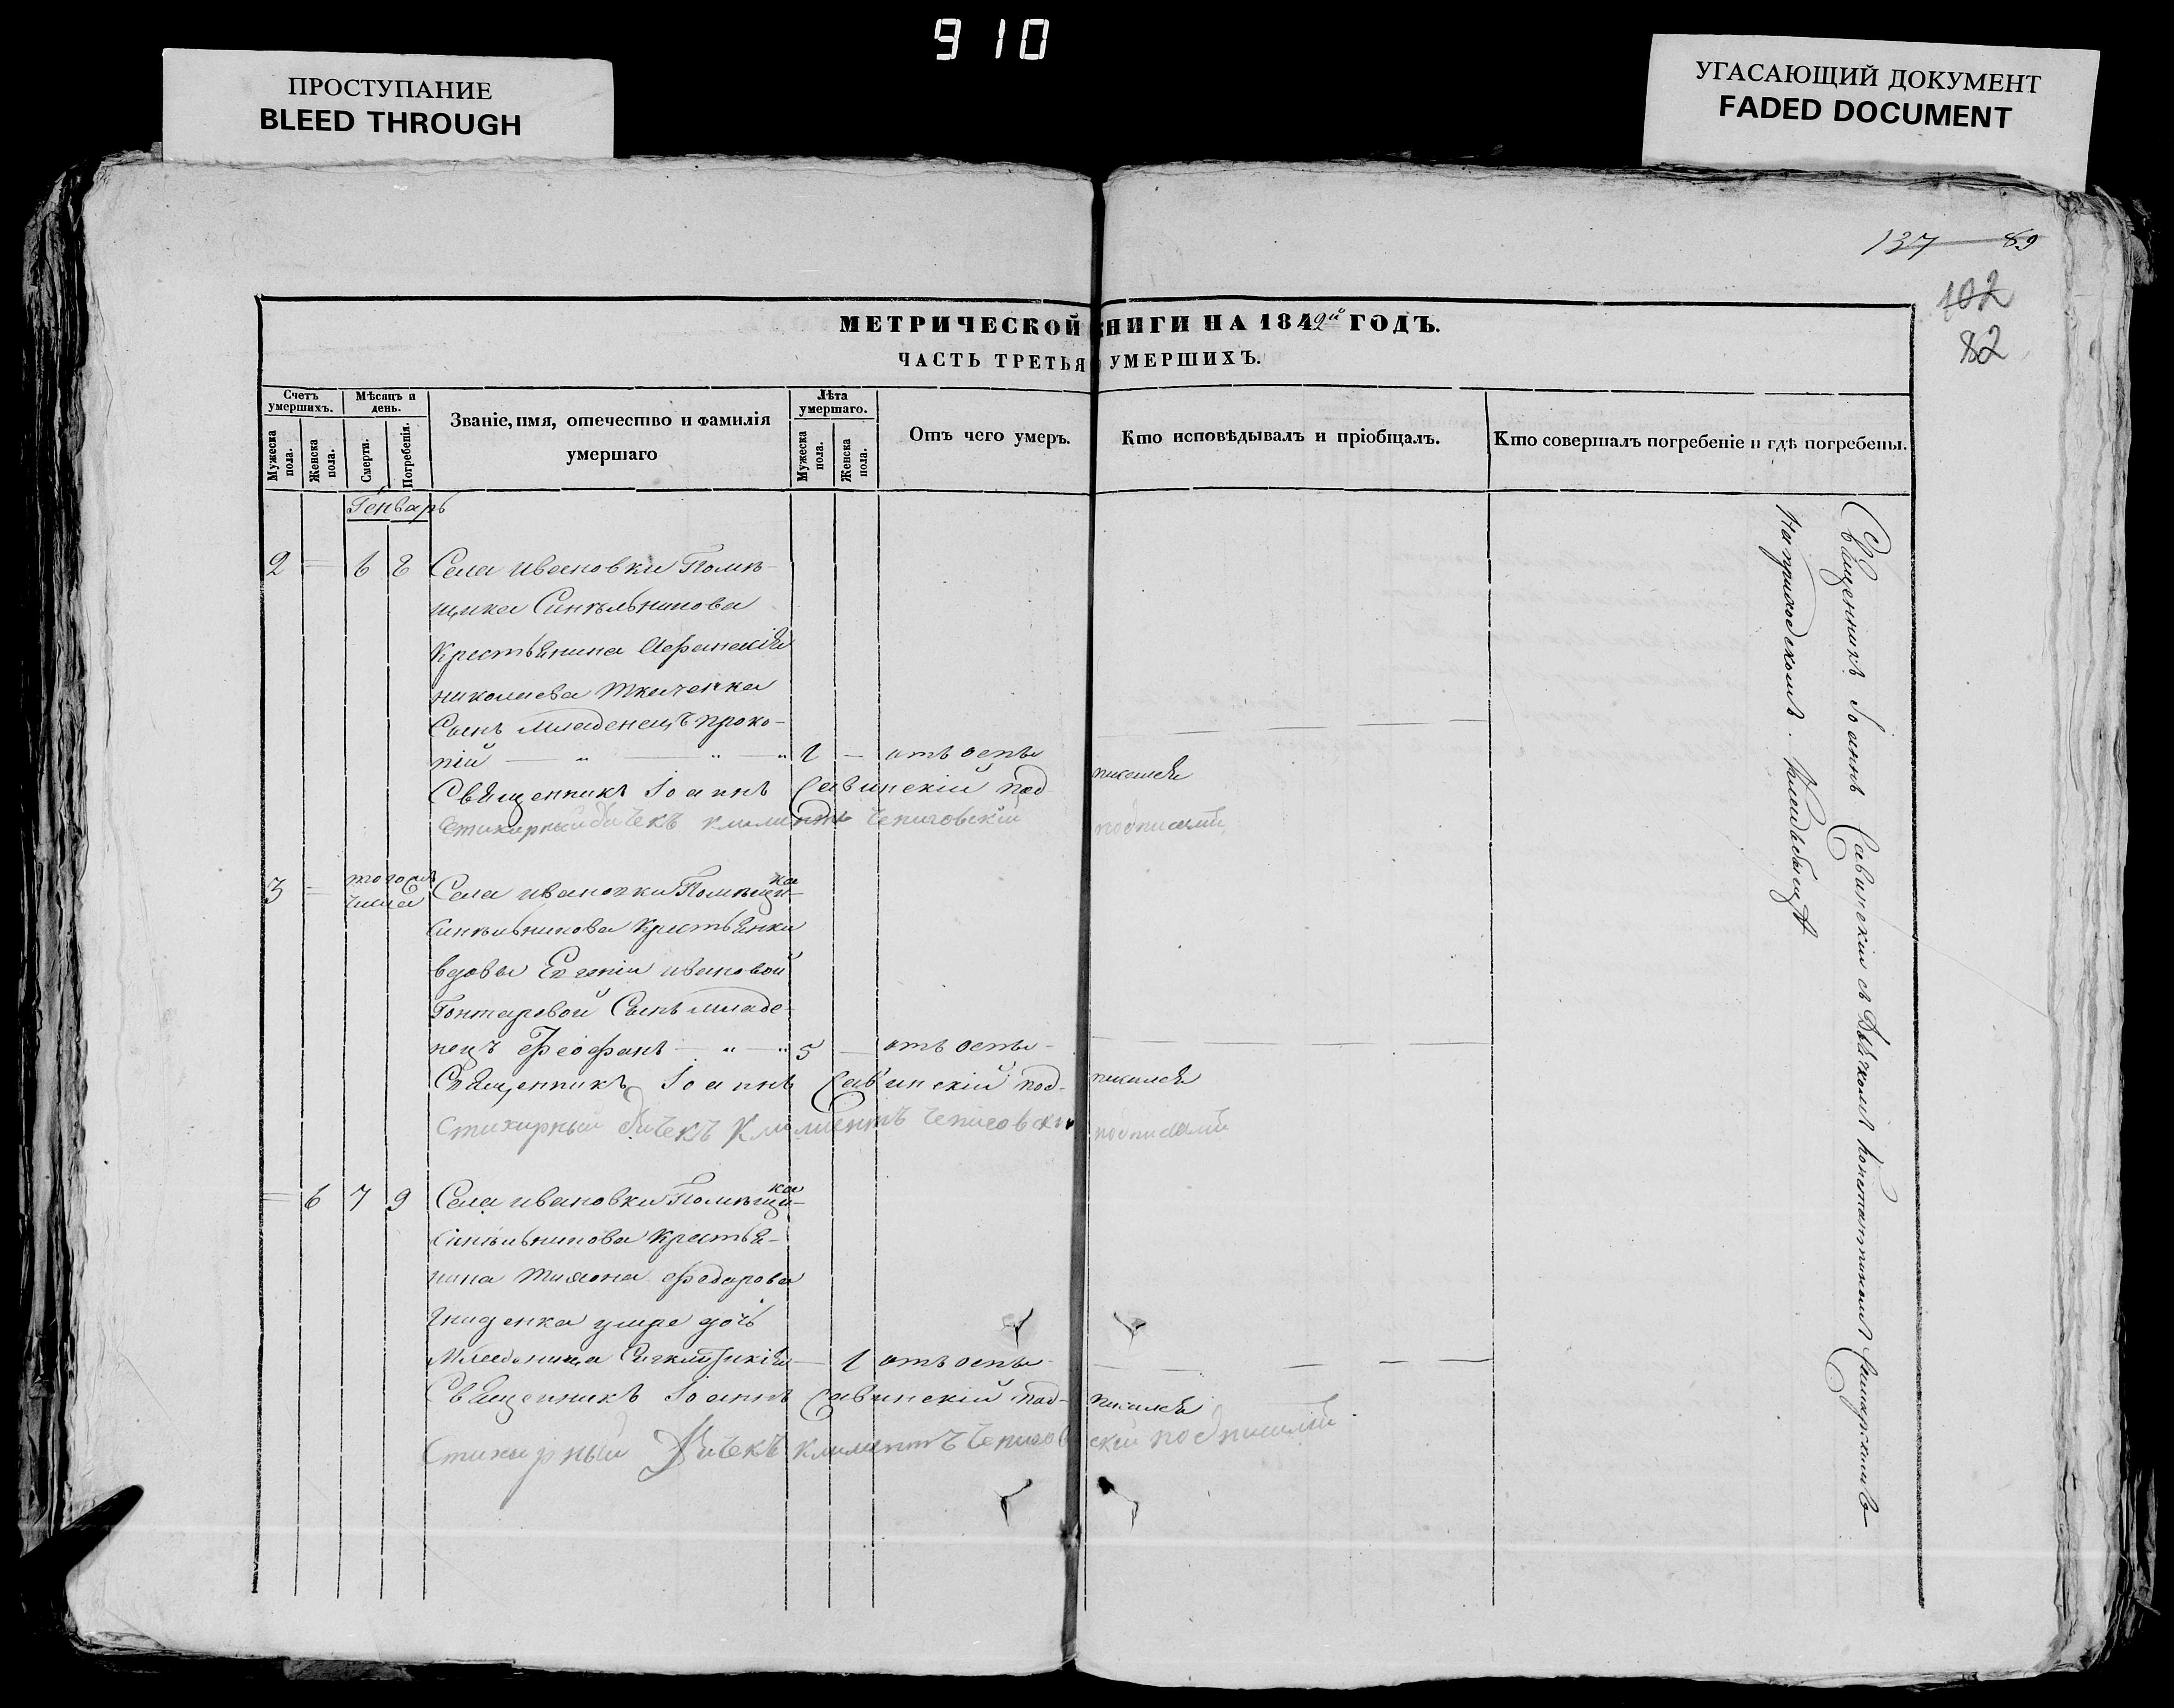 910
ПРОСТУПАНИЕ
BLEED THROUGH
УГАСАЮЩИЙ ДОКУМЕНТ
FADED DOCUMENT
137 89
102
82
МЕТРИЧЕСКОЙ КНИГИ НА 1842й ГОДЪ.
ЧАСТЬ ТРЕТЬЯ УМЕРШИХЪ.
Счетъ умершихъ.
Мужеска пола.
Женска пола.
Мѣсяцъ и день.
Смерти.
Погребенія.
Званіе, имя, отечество и фамилія умершаго
Лѣта умершаго.
Мужеска пола.
Женска пола.
Отъ чего умеръ.
Кто исповѣдывалъ и пріобщалъ.
Кто совершалъ погребеніе и гдѣ погребены.
Генварь
2 = 6 8 Села Ивановки Помѣ-
щика Синѣльникова
Крестьянина Афанасія
Николаева Ткаченка
Сынъ младенецъ Проко-
пій — „ — „ — „ 1 — отъ оспы
Священникъ Іоаннъ Савинскій подписался
Стихирный дьячекъ Климентъ Чепиговскій подписалъ
3 = того же числа Села Ивановки Помѣщика
Синѣльникова Крестьянки
вдовы Евгеніи Ивановой
Гонтаровой Сынъ младе-
нецъ Феофанъ — „ — „ 5 — отъ оспы
Священникъ Іоаннъ Савинскій подписался
Стихирный дьячекъ Климентъ Чепиговскій подписалъ
= 6 7 9 Села Ивановки Помѣщика
Синѣльникова Крестья-
нина Федорова
умре дочь
Младеница — 1 отъ оспы
Священникъ Іоаннъ Савинскій подписался
Стихирный Дьячекъ Климентъ Чепиговскій подписалъ
Священникъ Іоаннъ Савинскій съ Дьячкомъ Константиномъ
На приходскомъ Кладбищѣ